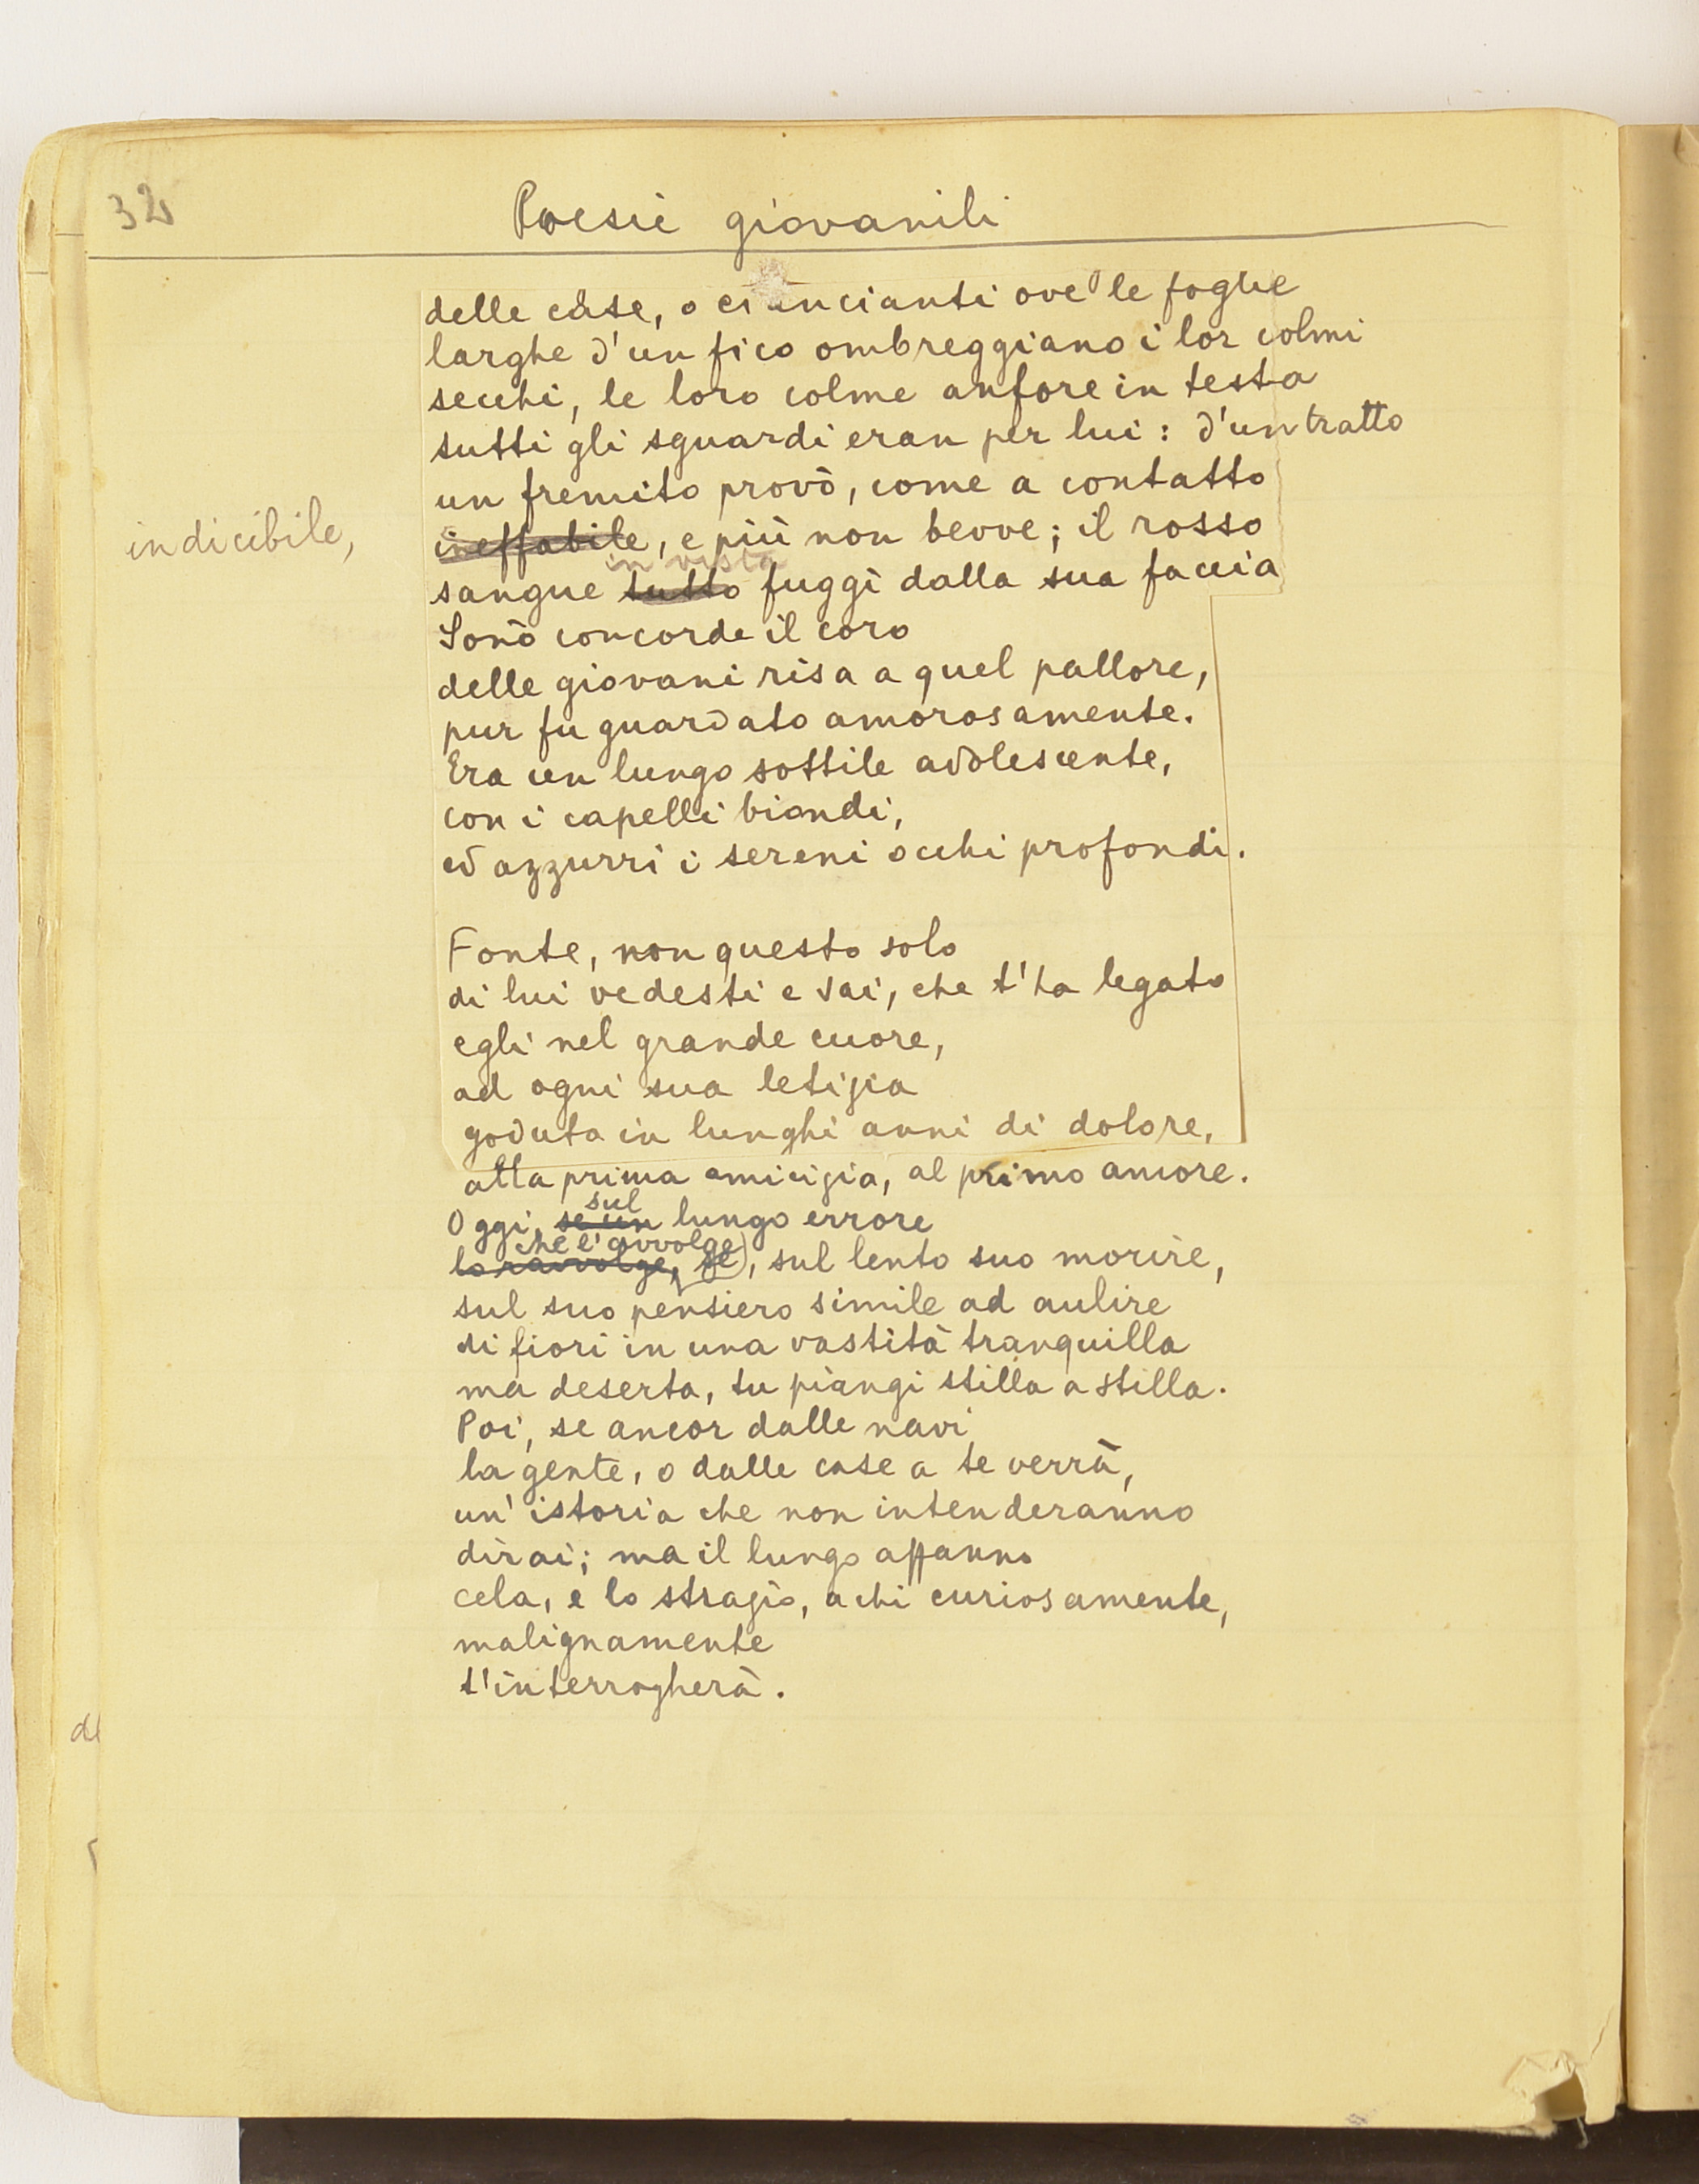 32
Poesie giovanili
delle case, o ciancianti ove le foglie
larghe d'un fico ombreggiano i lor colmi
secchi, le loro colme anfore in testa
tutti gli sguardi eran per lui: d'un tratto
un fremito provò, come a contatto
indicibile,
ineffabile, e più non bevve; il rosso
in vista
sangue tutto fuggì dalla sua faccia
Sonò concorde il coro
delle giovani risa a quel pallore,
pur fu guardato amorosamente.
Era un lungo sottile adolescente,
con i capelli biondi,
ed azzurri i sereni occhi profondi.
Fonte, non questo solo
di lui vedesti e sai, che t'ha legato
egli nel grande cuore,
ad ogni sua letizia
goduta in lunghi anni di dolore,
alla prima amicizia, al primo amore.
sul
Oggi, se un lungo errore
che l'avvolge
lo ravvolge, se, sul lento suo morire,
sul suo pensiero simile ad aulire
di fiori in una vastità tranquilla
ma deserta, tu piangi stilla a stilla.
Poi, se ancor dalle navi
la gente, o dalle case a te verrà,
un' istoria che non intenderanno
dirai; ma il lungo affanno
cela, e lo strazio, a chi curiosamente,
malignamente
t'interrogherà.